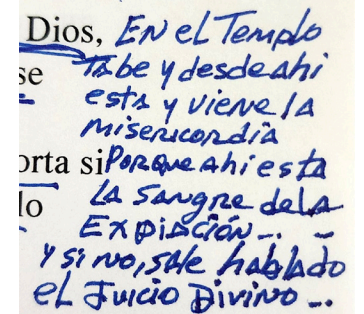 Dios, EN el Templo
se Tabe y desde ahi
esta y viene la
misericordia
orta si Porque ahi esta
lo La Sangre de la
Expiación...
y si no, sale hablado
el Juicio Divino...